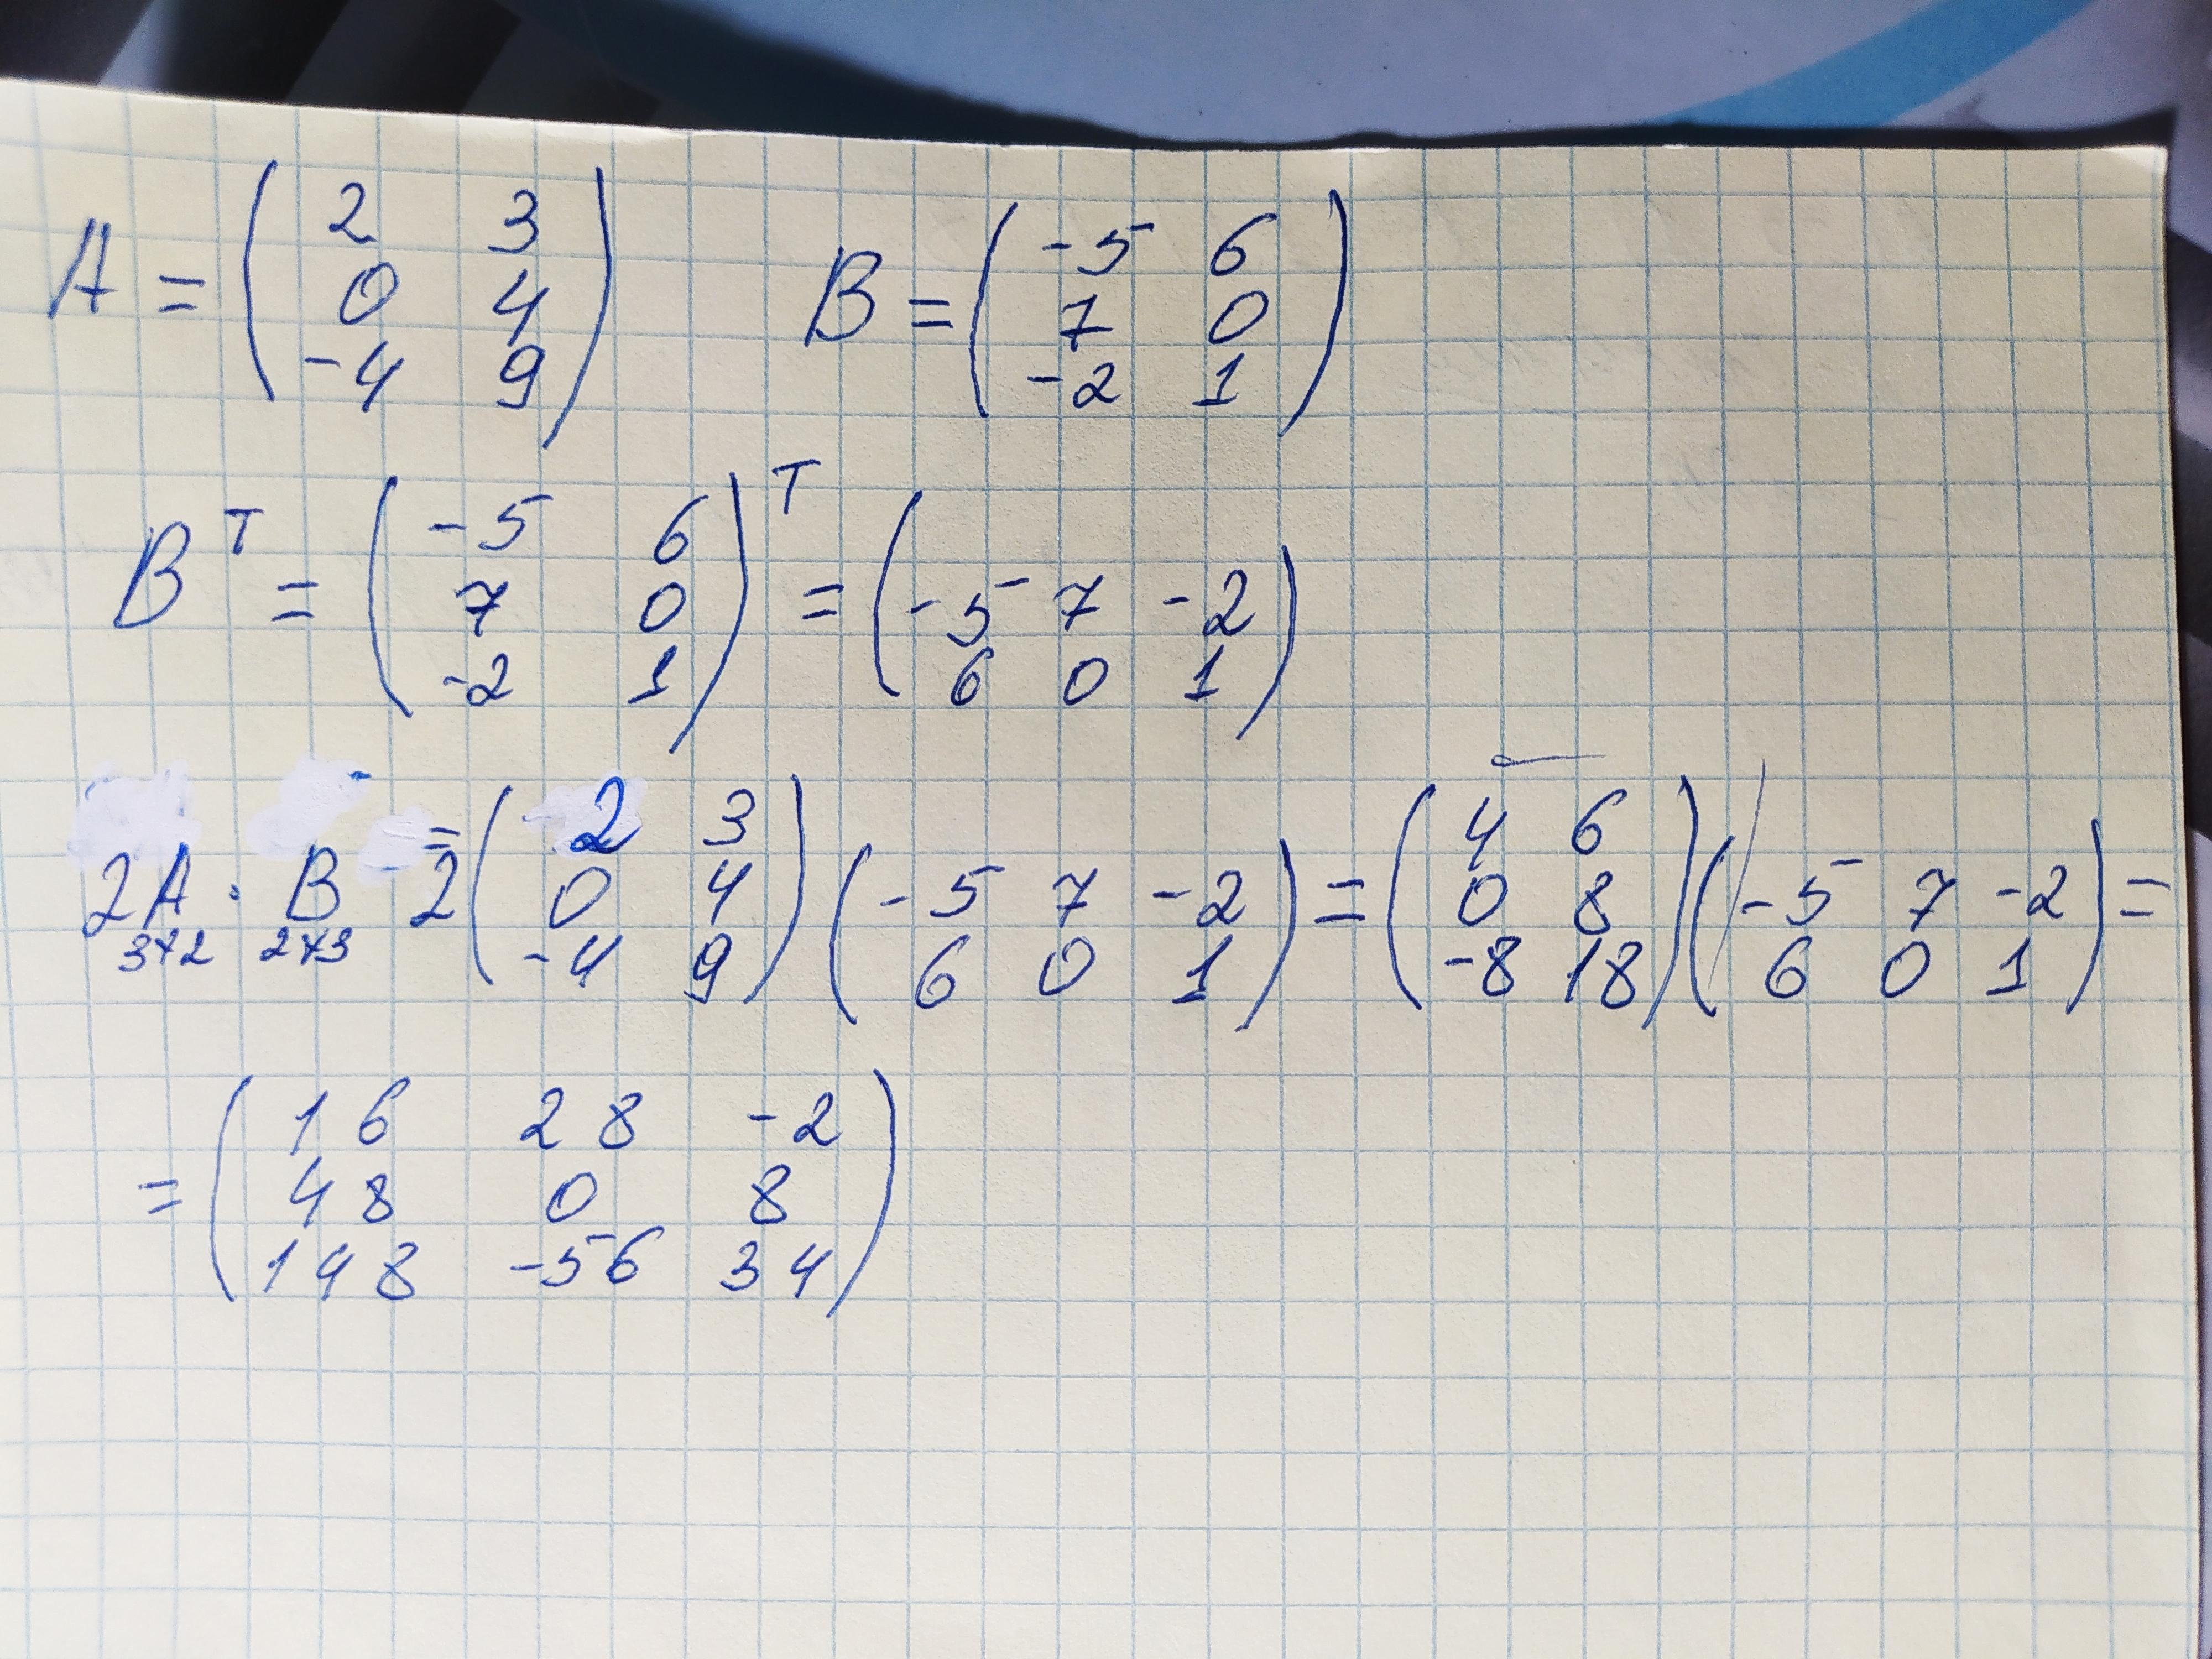 A = ( 2 3 ; 0 4 ; -4 9 ) B = ( -5 6 ; 7 0 ; -2 1 )
B^T = ( -5 6 ; 7 0 ; -2 1 )^T = ( -5 7 -2 ; 6 0 1 )
2A_{3×2} · B_{2×3} = 2 ( 2 3 ; 0 4 ; -4 9 ) ( -5 7 -2 ; 6 0 1 ) = ( 4 6 ; 0 8 ; -8 18 ) ( -5 7 -2 ; 6 0 1 ) =
= ( 16 28 -2 ; 48 0 8 ; 148 -56 34 )